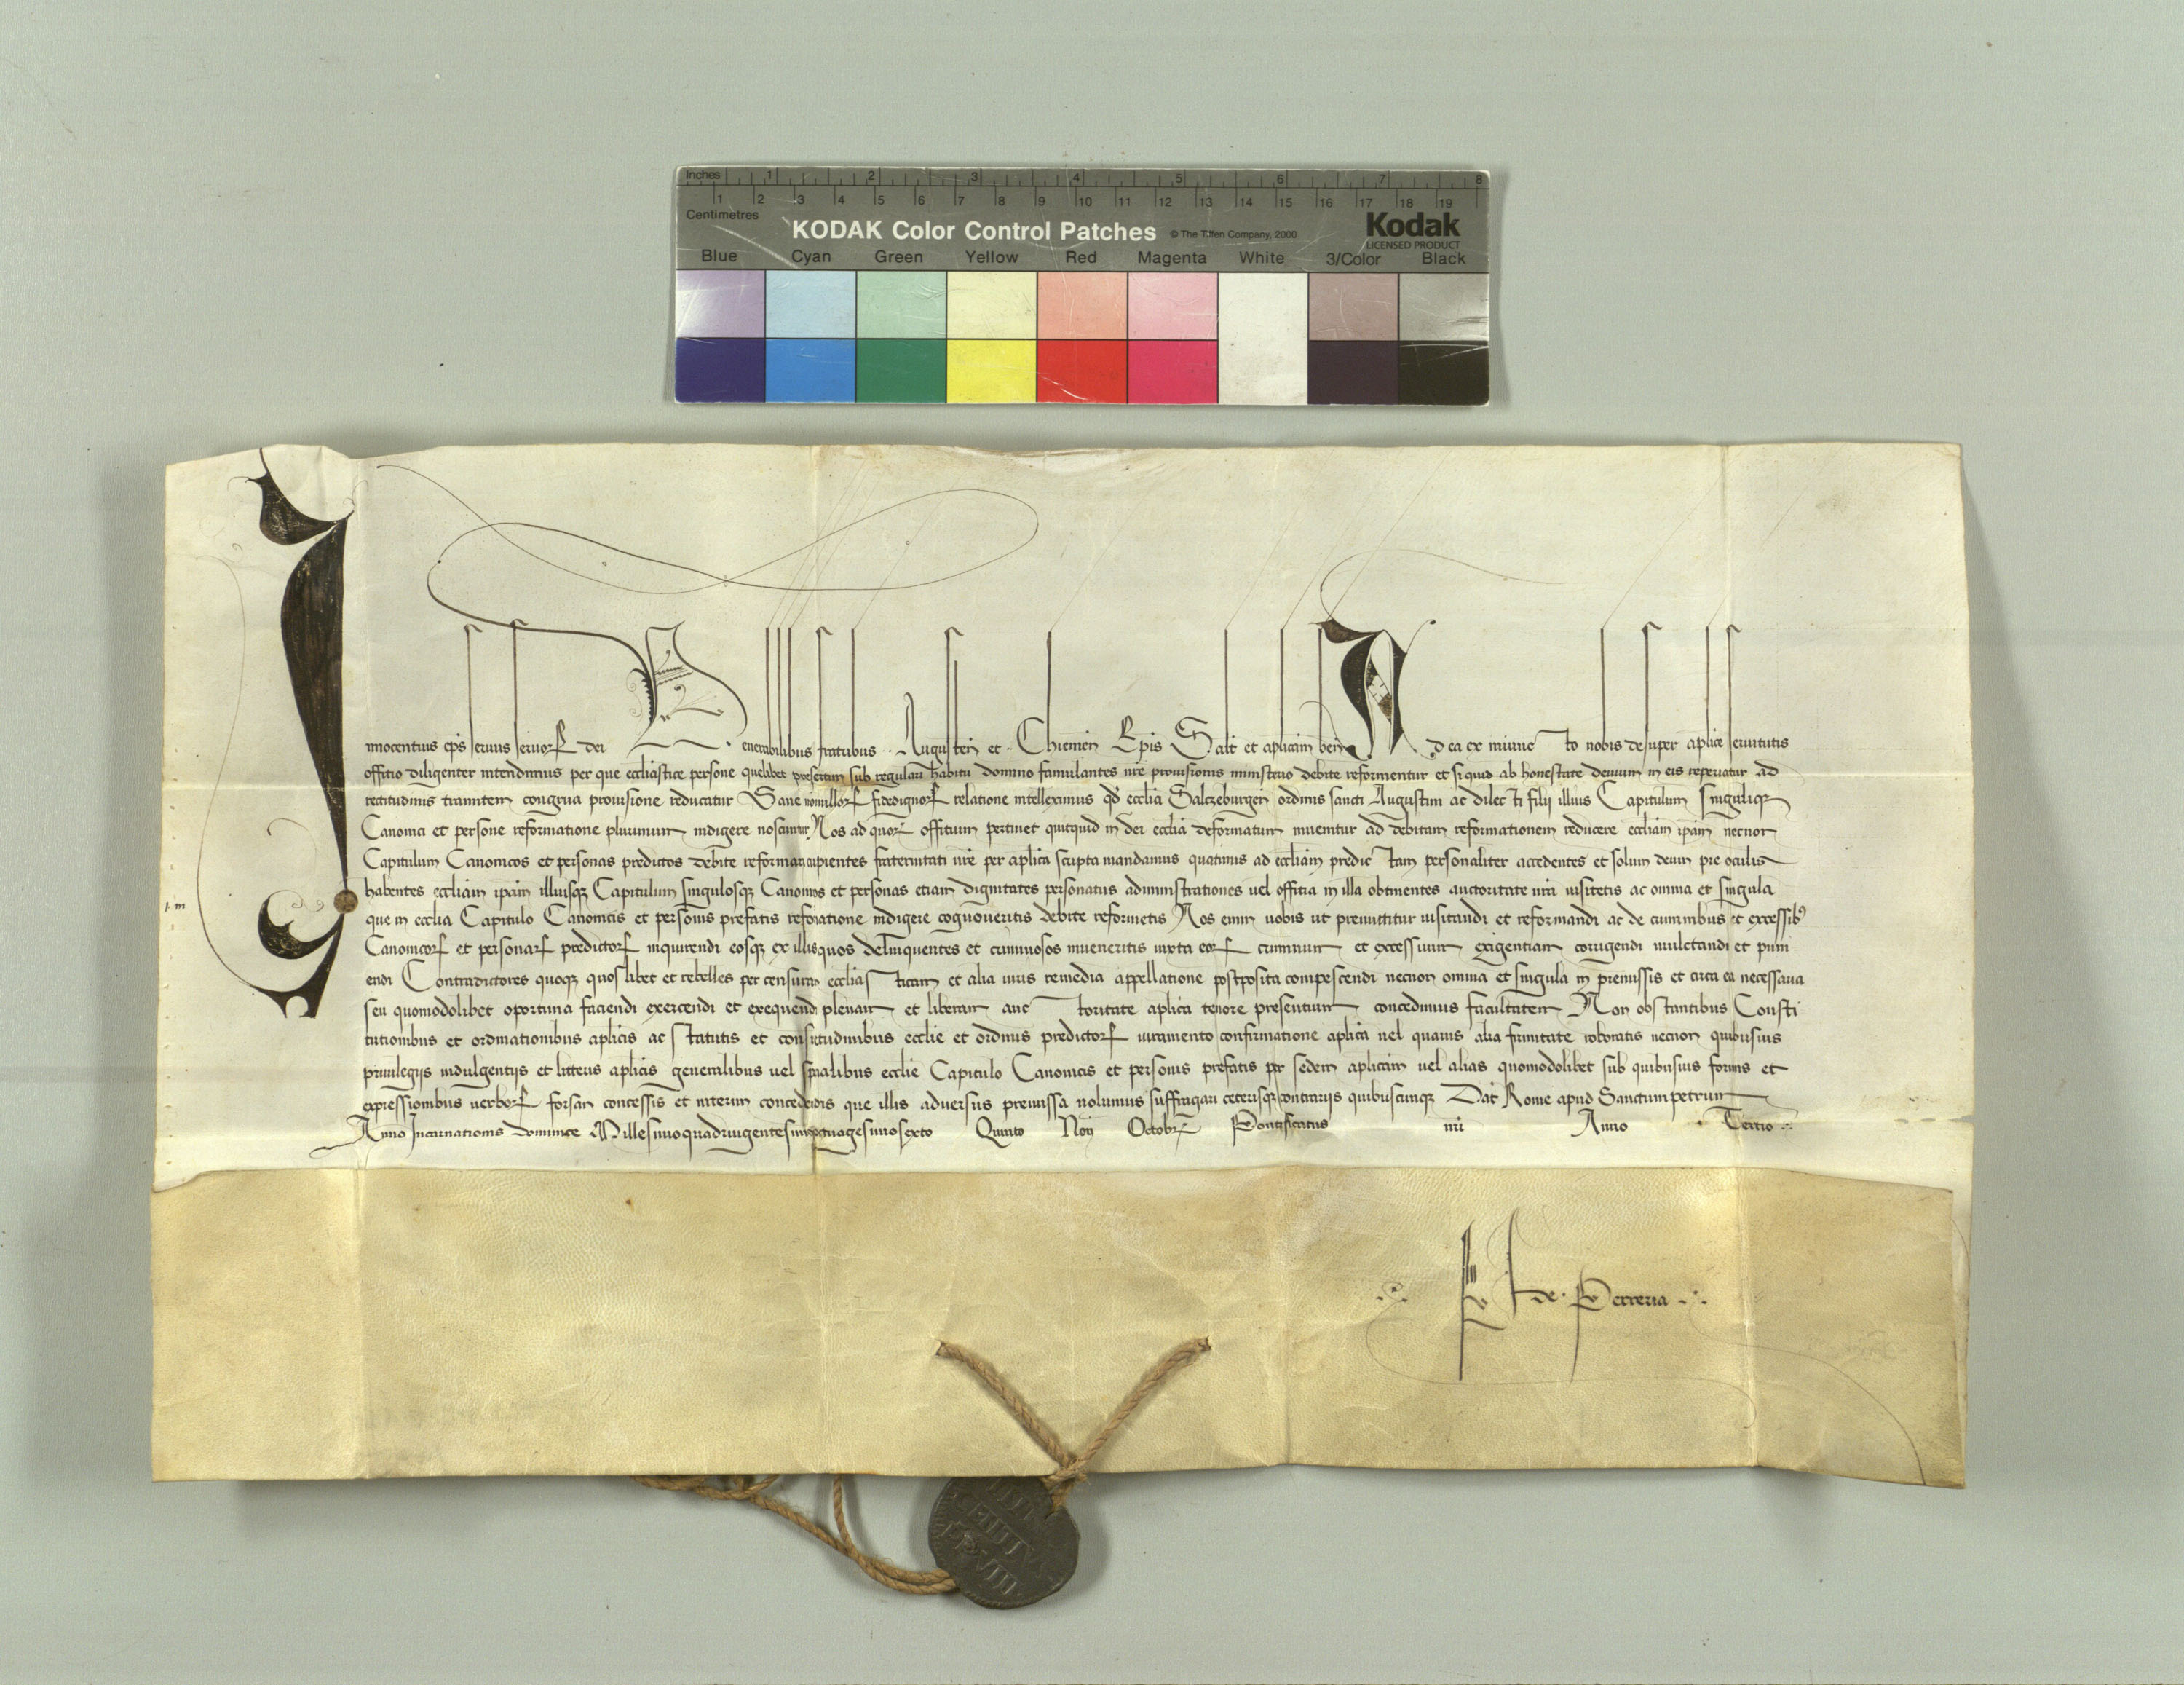 Inches 1 2 3 4 5 6 7 8
1 2 3 4 5 6 7 8 9 10 11 12 13 14 15 16 17 18 19
Centimetres
KODAK Color Control Patches © The Tiffen Company, 2000 Kodak
LICENSED PRODUCT
Blue Cyan Green Yellow Red Magenta White 3/Color Black
Innocentius ep̄s seruus seruorꝝ dei Venerabilibus fratribus .. Augusteñ et .. Chiemeñ Ep̄is Salt̄ et ap̄licam̄ beñ Ad ea ex iniuncto nobis desuper ap̄lice seruitutis
offitio diligenter intendimus per que eccliastice persone quelibet presertim sub regulari habitu domino famulantes nr̄e prouisionis ministerio debite reformentur et si quid ab honestate deuium in eis reperiatur ad
rectitudinis tramitem congrua prouisione reducatur Sane nonnullorꝝ fidedignorꝝ relatione intelleximus qd̄ ecclia Salczeburgeñ ordinis sancti Augustini ac dilecti filii illius Capitulum singulique
Canonici et persone reformatione plurimum indigere noscuntur Nos ad quorꝝ offitium pertinet quicquid in dei ecclia deformatum inuenitur ad debitam reformationem reducere eccliam ip̄am necnon
Capitulum Canonicos et personas predictos debite reformari cupientes fraternitati ur̄e per ap̄lica scripta mandamus quatinus ad eccliam predictam personaliter accedentes et solum deum pre oculis
habentes eccliam ip̄am illiusqꝫ Capitulum singulosqꝫ Canonicos et personas etiam dignitates personatus administrationes uel offitia in illa obtinentes auctoritate nr̄a uisitetis ac omnia et singula
que in ecclia Capitulo Canonicis et personis prefatis reformatione indigere cognoueritis debite reformetis Nos enim uobis ut premittitur uisitandi et reformandi ac de criminibus et excessibꝰ
Canonicorꝝ et personarꝝ predictorꝝ inquirendi eosqꝫ ex illis quos delinquentes et criminosos inueneritis iuxta eorꝝ criminum et excessiuum exigentiam corrigendi mulctandi et puni
endi Contradictores quoqꝫ quoslibet et rebelles per censuram eccliasticam et alia iuris remedia appellatione postposita compescendi necnon omnia et singula in premissis et circa ea necessaria
seu quomodolibet oportuna faciendi exercendi et exequendi plenam et liberam auctoritate ap̄lica tenore presentium concedimus facultatem Non obstantibus Consti
tutionibus et ordinationibus ap̄licis ac statutis et consuetudinibus ecclie et ordinis predictorꝝ iuramento confirmatione ap̄lica uel quauis alia firmitate roboratis necnon quibusuis
priuilegijs indulgentijs et litteris ap̄licis generalibus uel sp̄ialibus ecclie Capitulo Canonicis et personis prefatis per sedem ap̄licam uel alias quomodolibet sub quibusuis formis et
expressionibus uerborꝝ forsan concessis et interim concedendis que illis aduersus premissa nolumus suffragari ceterisqꝫ contrarijs quibuscunqꝫ Dat̄ Rome apud Sanctumpetrum
Anno Incarnationis dominice Millesimoquadringentesimooctuagesimosexto Quinto Noñ Octobrꝭ Pontificatus nr̄i Anno Tertio
de Perreria
CENTIVS
PP VIII